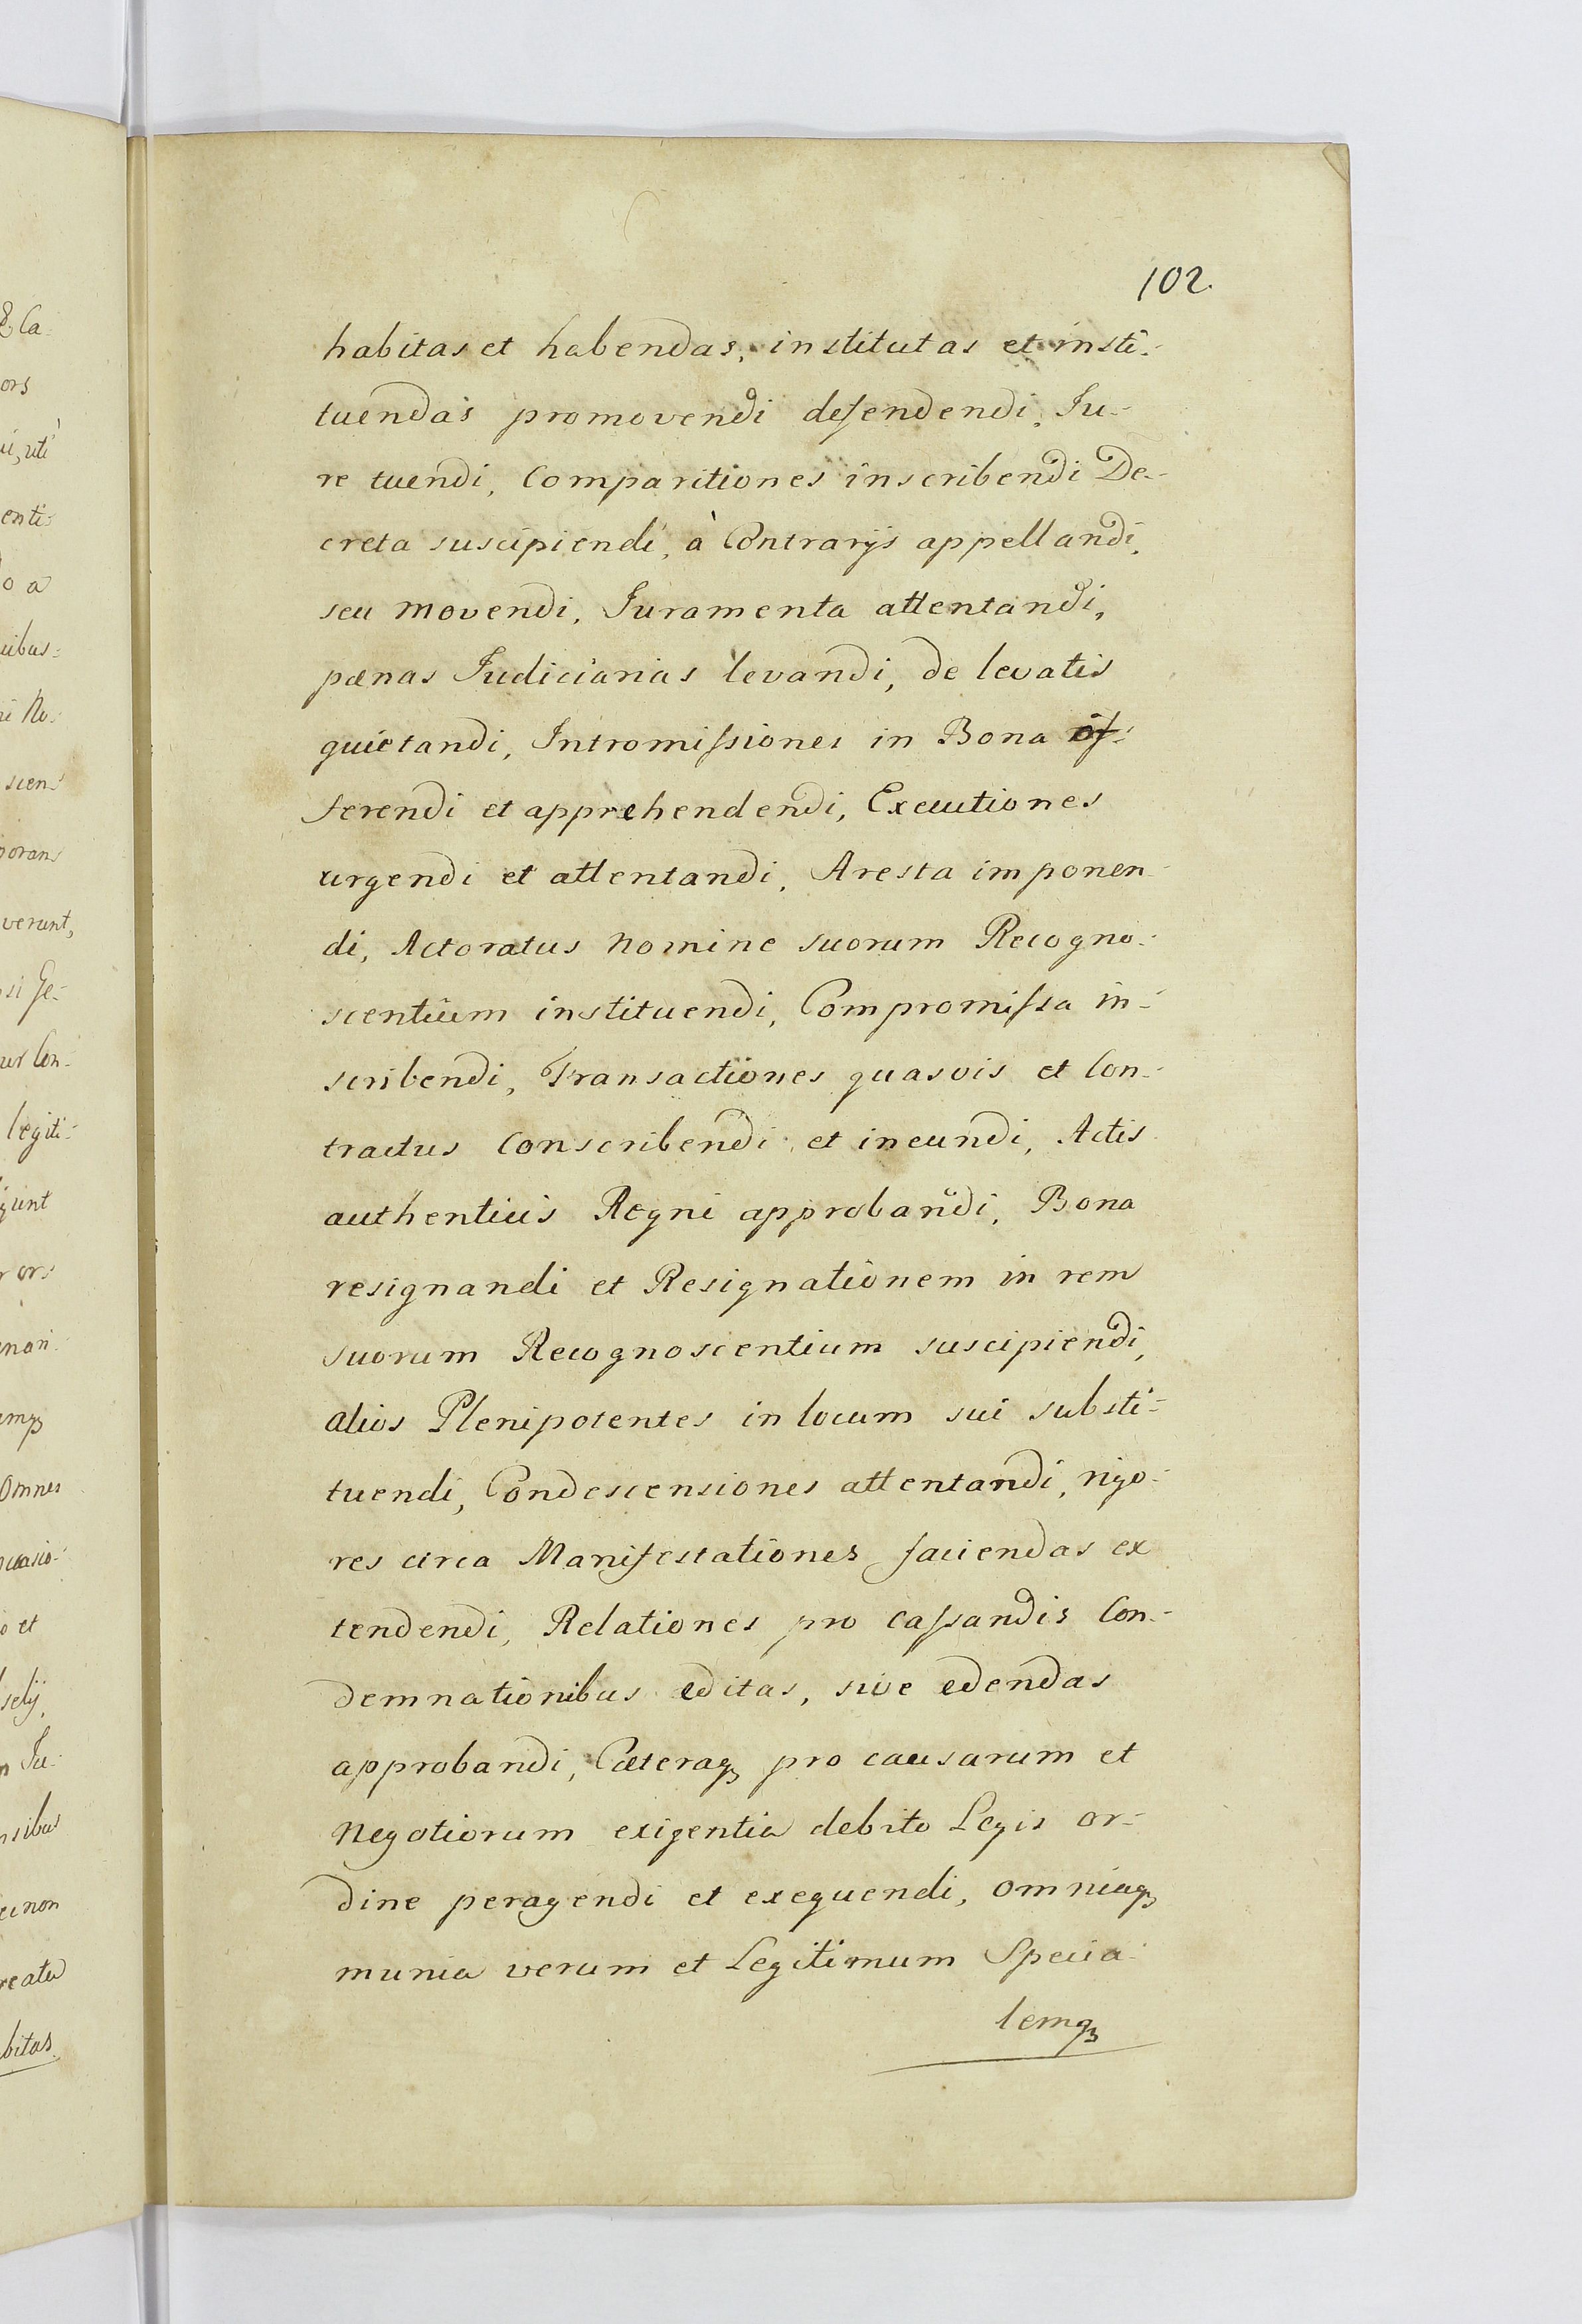 102.
habitas et habendas, institutas et insti-
tuendas promovendi defendendi, Iu-
re tuendi, Comparitiones inscribendi De-
creta suscipiendi, à Contrarijs appellandi,
seu movendi, Iuramenta attentandi,
pænas Iudiciarias levandi, de levatis
quietandi, Intromissiones in Bona of-
ferendi et apprehendendi, Executiones
urgendi et attentandi, Aresta imponen-
di, Actoratus Nomine suorum Recogno-
scentium instituendi, Compromissa in-
scribendi, Transactiones quasvis et Con-
tractus Conscribendi et ineundi, Actis
authenticis Regni approbandi, Bona
resignandi et Resignationem in rem
suorum Recognoscentium suscipiendi,
alios Plenipotentes in locum sui substi-
tuendi, Condescensiones attentandi, rigo-
res circa Manifestationes faciendas ex
tendendi, Relationes pro cassandis Con-
demnationibus editas, sive edendas
approbandi, Cæteraqꝫ pro causarum et
Negotiorum exigentia debito Legis or-
dine peragendi et exequendi, omniaqꝫ
munia verum et Legitimum Specia-
lemqꝫ